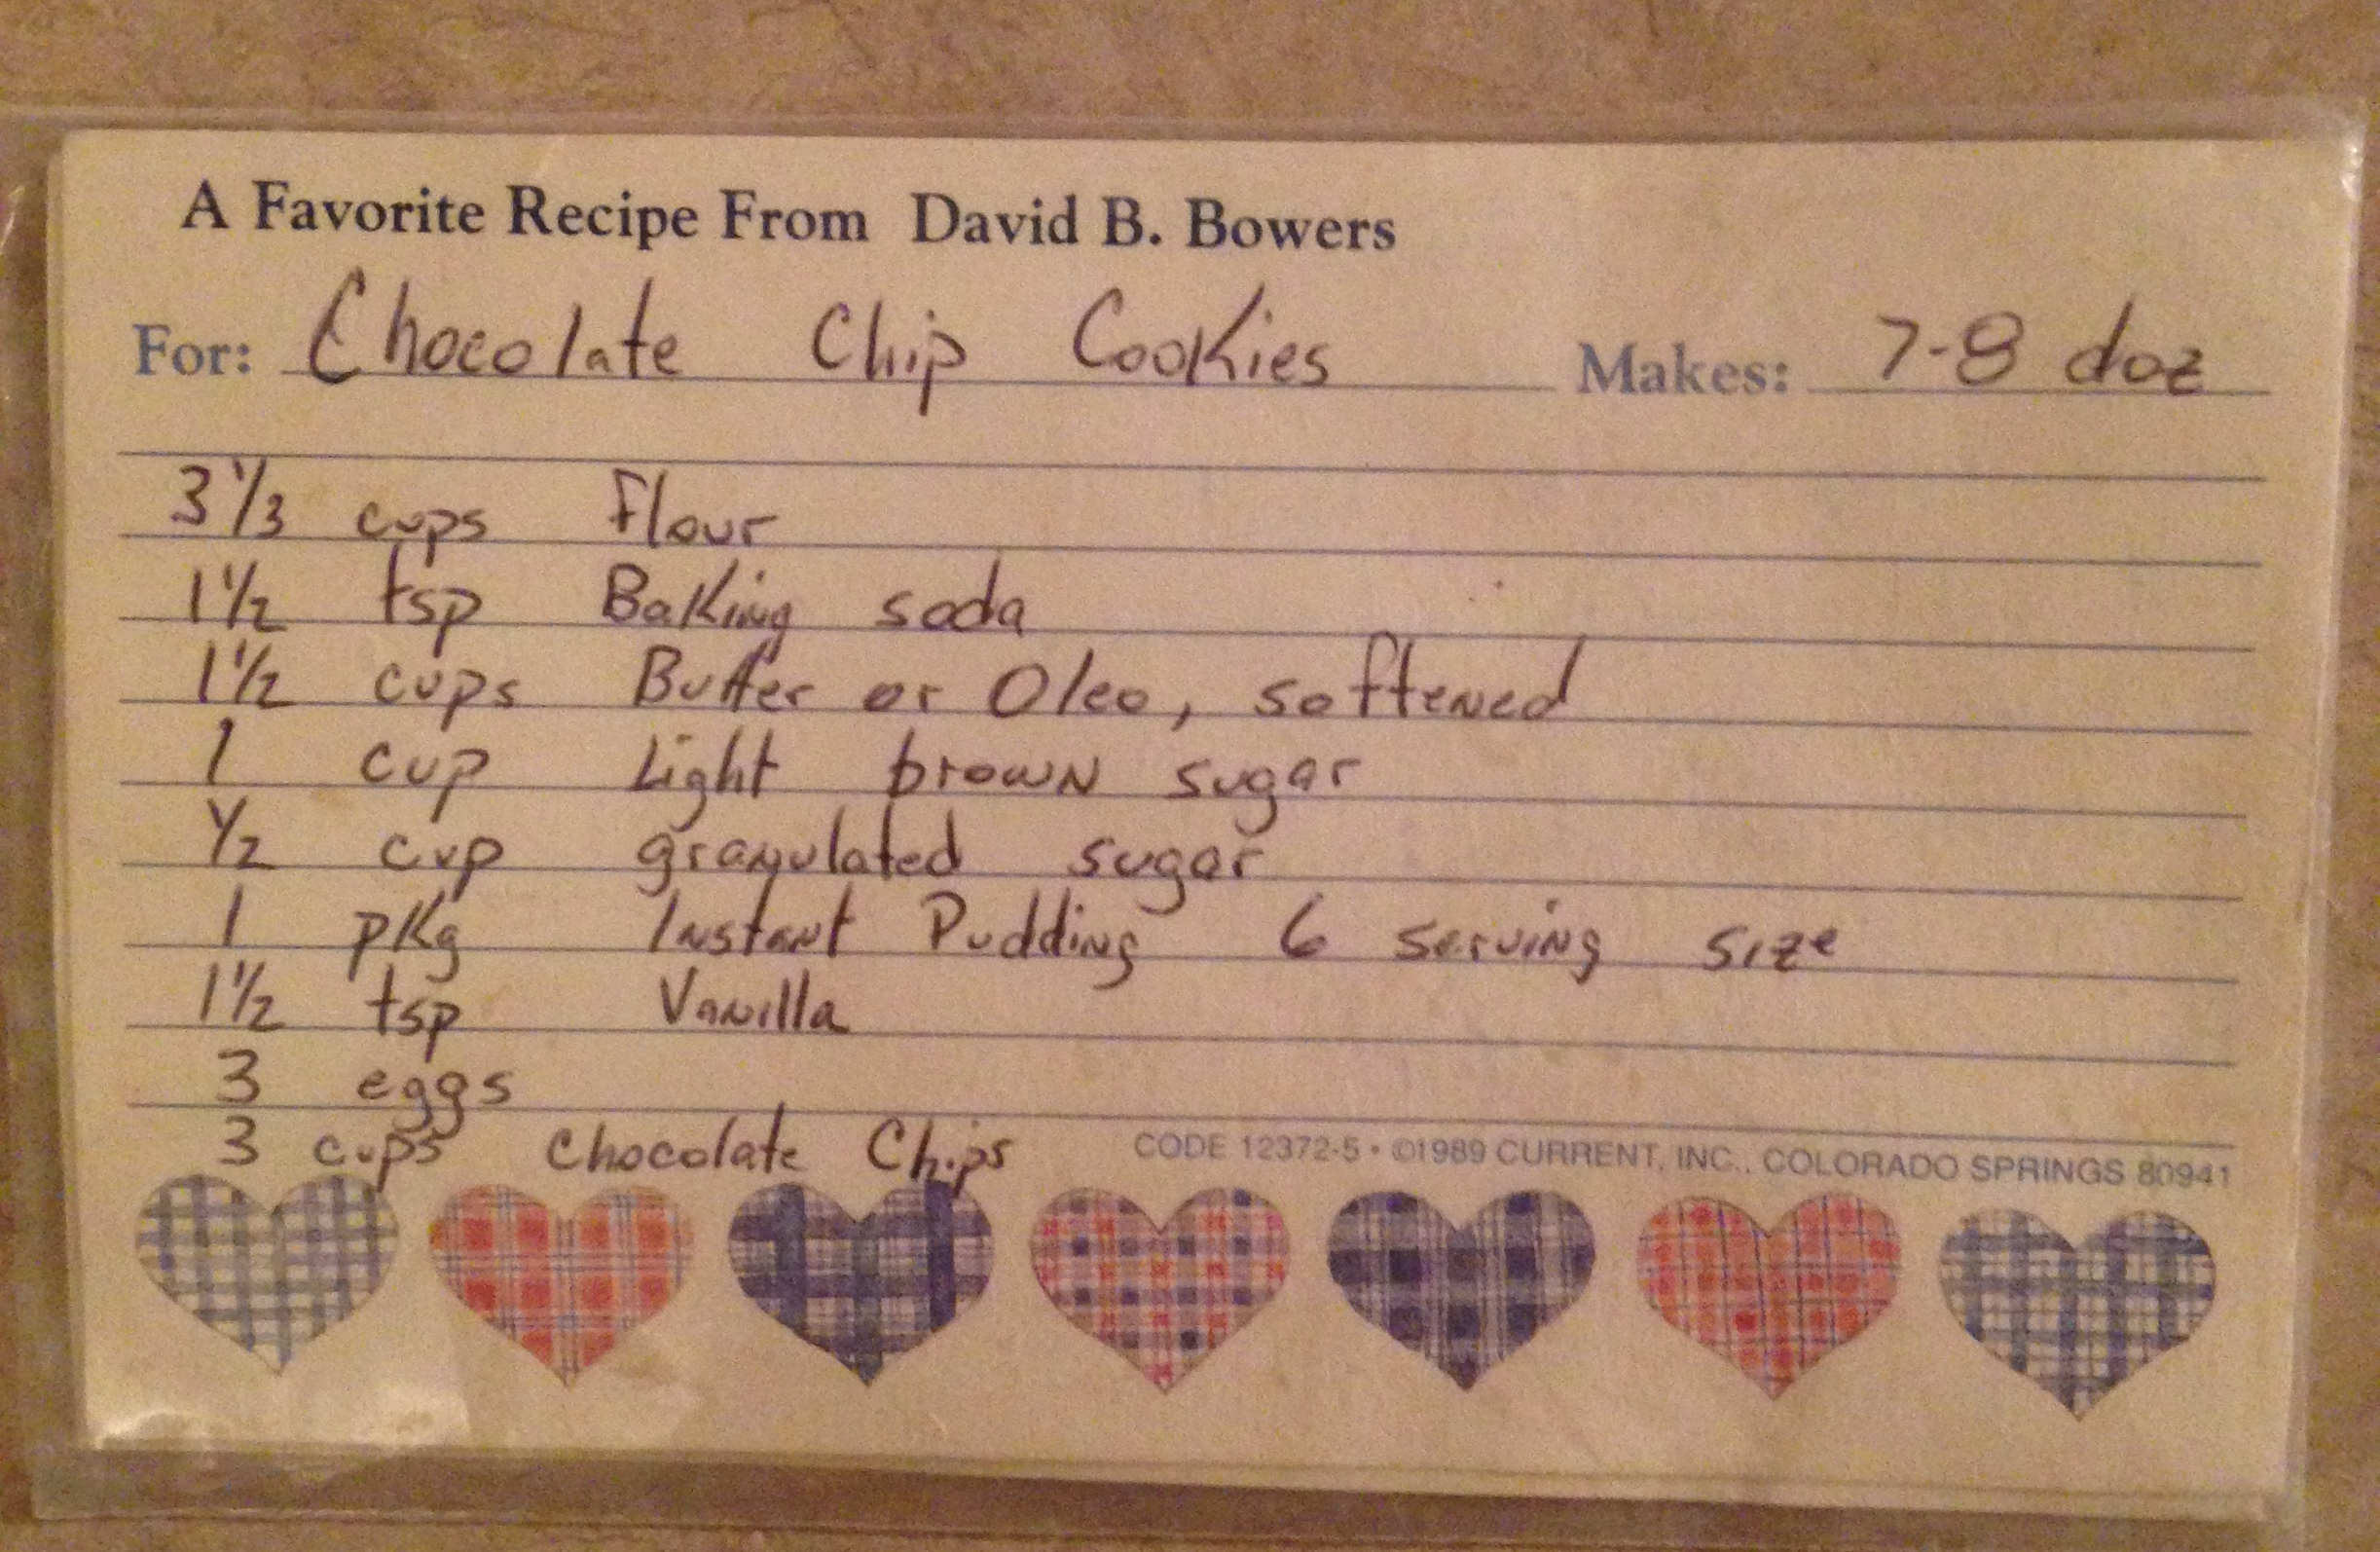 A Favorite Recipe From David B. Bowers
For: Chocolate Chip Cookies Makes: 7-8 doz
3 1/3 cups Flour
1 1/2 tsp Baking soda
1 1/2 cups Butter or Oleo, softened
1 cup Light brown sugar
1/2 cup granulated sugar
1 pkg Instant Pudding 6 serving size
1 1/2 tsp Vanilla
3 eggs
3 cups Chocolate Chips
CODE 12372-5 • ©1989 CURRENT, INC., COLORADO SPRINGS 80941